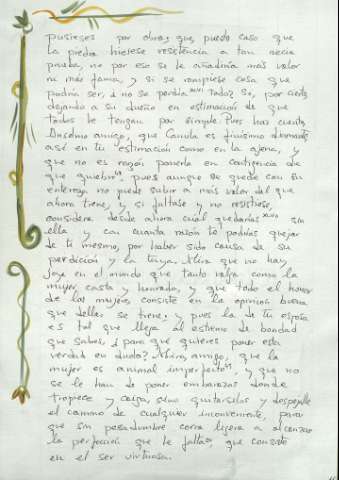 pusieses por obra; que, puesto caso que
la piedra hiciese resistencia a tan necia
prueba, no por eso se le añadiría más valor
ni más fama; y si se rompiese cosa que
podría ser, ¿no se perdía todo? Sí, por cierto,
dejando a su dueño en estimación de que
todos le tengan por simple. Pues haz cuenta,
Anselmo amigo, que Camila es finísimo diamante,
así en tu estimación como en la ajena, y
que no es razón ponerla en contingencia de
que quiebre, pues aunque se quede con su
entereza no puede subir a más valor del que
ahora tiene; y si faltase y no resistiese,
considera desde ahora cuál quedarías sin
ella y con cuánta razón te podrías quejar
de ti mismo, por haber sido causa de su
perdición y la tuya. Mira que no hay
joya en el mundo que tanto valga como la
mujer casta y honrada, y que todo el honor
de las mujeres consiste en la opinión buena
que dellas se tiene; y pues la de tu esposa
es tal que llega al extremo de bondad
que sabes, ¿para qué quieres poner esta
verdad en duda? Mira, amigo, que la
mujer es animal imperfecto, y que no
se le han de poner embarazos donde
tropiece y caiga, sino quitárselos y despejalle
el camino de cualquier inconveniente, para
que sin pesadumbre corra ligera a alcanzar
la perfección que le falta, que consiste
en el ser virtuosa.